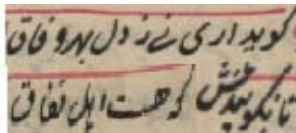 کو بداری نے ز دل بهر وفاق
تا نگویندش که هست اهل نفاق